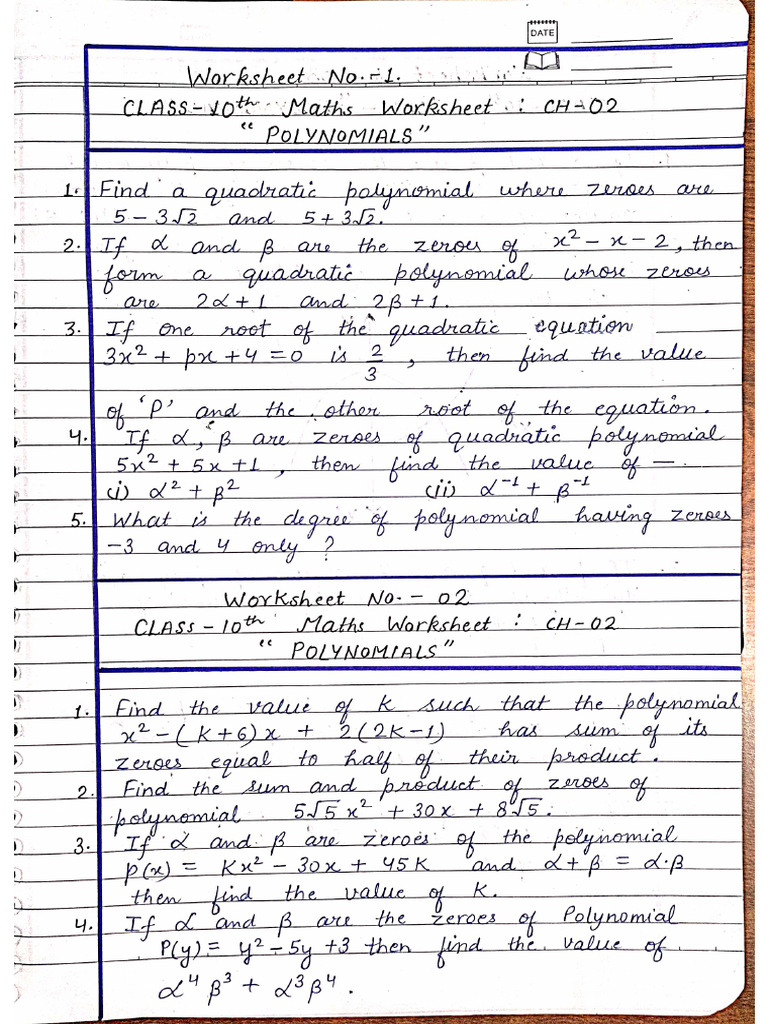 DATE
Worksheet No.-1.
CLASS-10th Maths Worksheet : CH-02
"POLYNOMIALS"
1. Find a quadratic polynomial where zeroes are
5-3√2 and 5+3√2.
2. If α and β are the zeroes of x²-x-2, then
form a quadratic polynomial whose zeroes
are 2α+1 and 2β+1.
3. If one root of the quadratic equation
3x²+px+4=0 is 2/3, then find the value
of 'P' and the other root of the equation.
4. If α, β are zeroes of quadratic polynomial
5x²+5x+1, then find the value of —
(i) α²+β² (ii) α⁻¹+β⁻¹
5. What is the degree of polynomial having zeroes
-3 and 4 only?
Worksheet No.-02
CLASS-10th Maths Worksheet : CH-02
"POLYNOMIALS"
1. Find the value of K such that the polynomial
x²-(K+6)x + 2(2K-1) has sum of its
zeroes equal to half of their product.
2. Find the sum and product of zeroes of
polynomial 5√5x² + 30x + 8√5.
3. If α and β are zeroes of the polynomial
p(x) = Kx²-30x+45K and α+β = α·β
then find the value of K.
4. If α and β are the zeroes of Polynomial
P(y) = y²-5y+3 then find the value of
α⁴β³+α³β⁴.